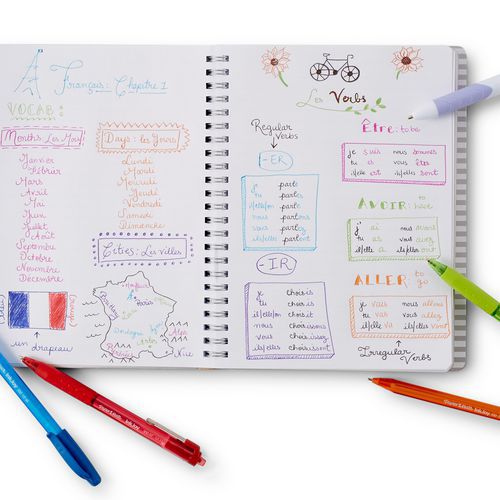 Français: Chapitre 1
VOCAB:
Months: Les Mois
Janvier
Février
Mars
Avril
Mai
Juin
Juillet
Août
Septembre
Octobre
Novembre
Décembre
Days: les Jours
Lundi
Mardi
Mercredi
Jeudi
Vendredi
Samedi
Dimanche
Cities: Les villes
Paris
Nice
un drapeau
Les Verbs
Regular
Verbs
-ER
je parle
tu parles
il/elle/on parle
nous parlons
vous parlez
ils/elles parlent
-IR
je choisis
tu choisis
il/elle/on choisit
nous choisissons
vous choisissez
ils/elles choisissent
Être: to be
je suis nous sommes
tu es vous êtes
il/elle est ils/elles sont
AVOIR to have
j' ai nous avons
tu as vous avez
il/elle a ils/elles ont
ALLER to go
je vais nous allons
tu vas vous allez
il/elle va ils/elles vont
Irregular
Verbs
PaperMate InkJoy
PaperMate InkJoy
PaperMate InkJoy